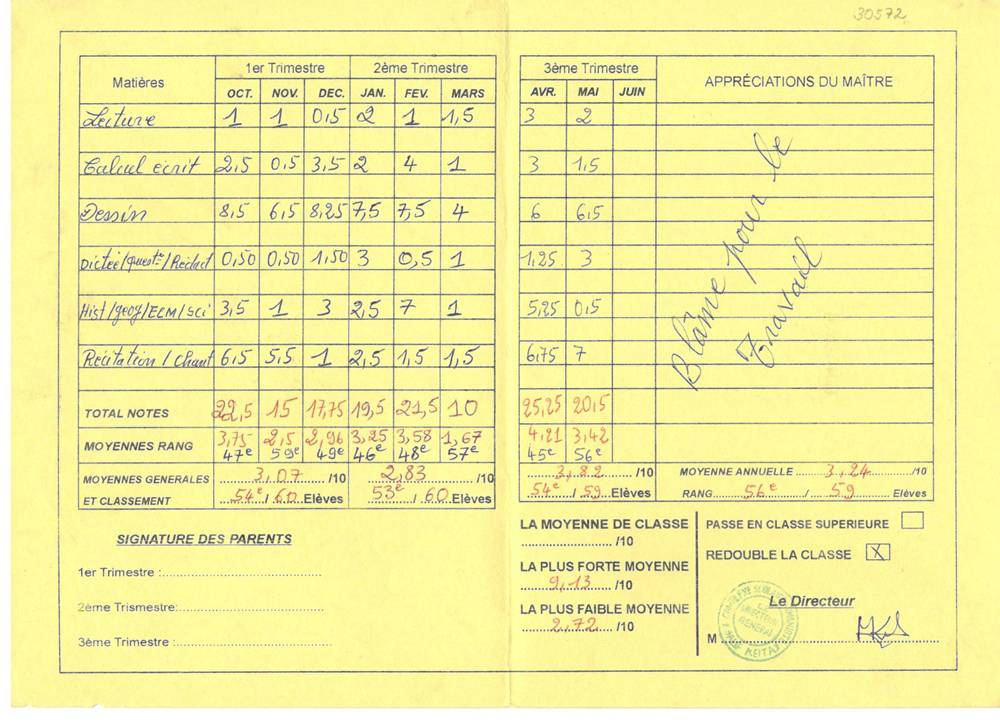 30572
Matières 1er Trimestre 2ème Trimestre 3ème Trimestre APPRÉCIATIONS DU MAÎTRE
OCT. NOV. DEC. JAN. FEV. MARS AVR. MAI JUIN
Lecture 1 1 0,5 2 1 1,5 3 2
Calcul écrit 2,5 0,5 3,5 2 4 1 3 1,5
Dessin 8,5 6,5 8,25 7,5 7,5 4 6 6,5
Dictée/Queste/Rédact 0,50 0,50 1,50 3 0,5 1 1,25 3
Hist/géog/ECM/Sci 3,5 1 3 2,5 7 1 5,25 0,5
Récitation / Chant 6,5 5,5 1 2,5 1,5 1,5 6,75 7
Blâme pour le
Travail
TOTAL NOTES 22,5 15 17,75 19,5 21,5 10 25,25 20,5
MOYENNES RANG 3,75 2,5 2,96 3,25 3,58 1,67 4,21 3,42
47e 59e 49e 46e 48e 57e 45e 56e
MOYENNES GENERALES 3,07 /10 2,83 /10 3,82 /10 MOYENNE ANNUELLE 3,24 /10
ET CLASSEMENT 54e / 60 Elèves 53e / 60 Elèves 54e / 59 Elèves RANG 56e / 59 Elèves
SIGNATURE DES PARENTS
1er Trimestre :
2ème Trismestre:
3ème Trimestre :
LA MOYENNE DE CLASSE
/10
LA PLUS FORTE MOYENNE
9,13 /10
LA PLUS FAIBLE MOYENNE
2,72 /10
PASSE EN CLASSE SUPERIEURE
REDOUBLE LA CLASSE X
Le Directeur
M
LE DIRECTEUR GENERAL
KEITA